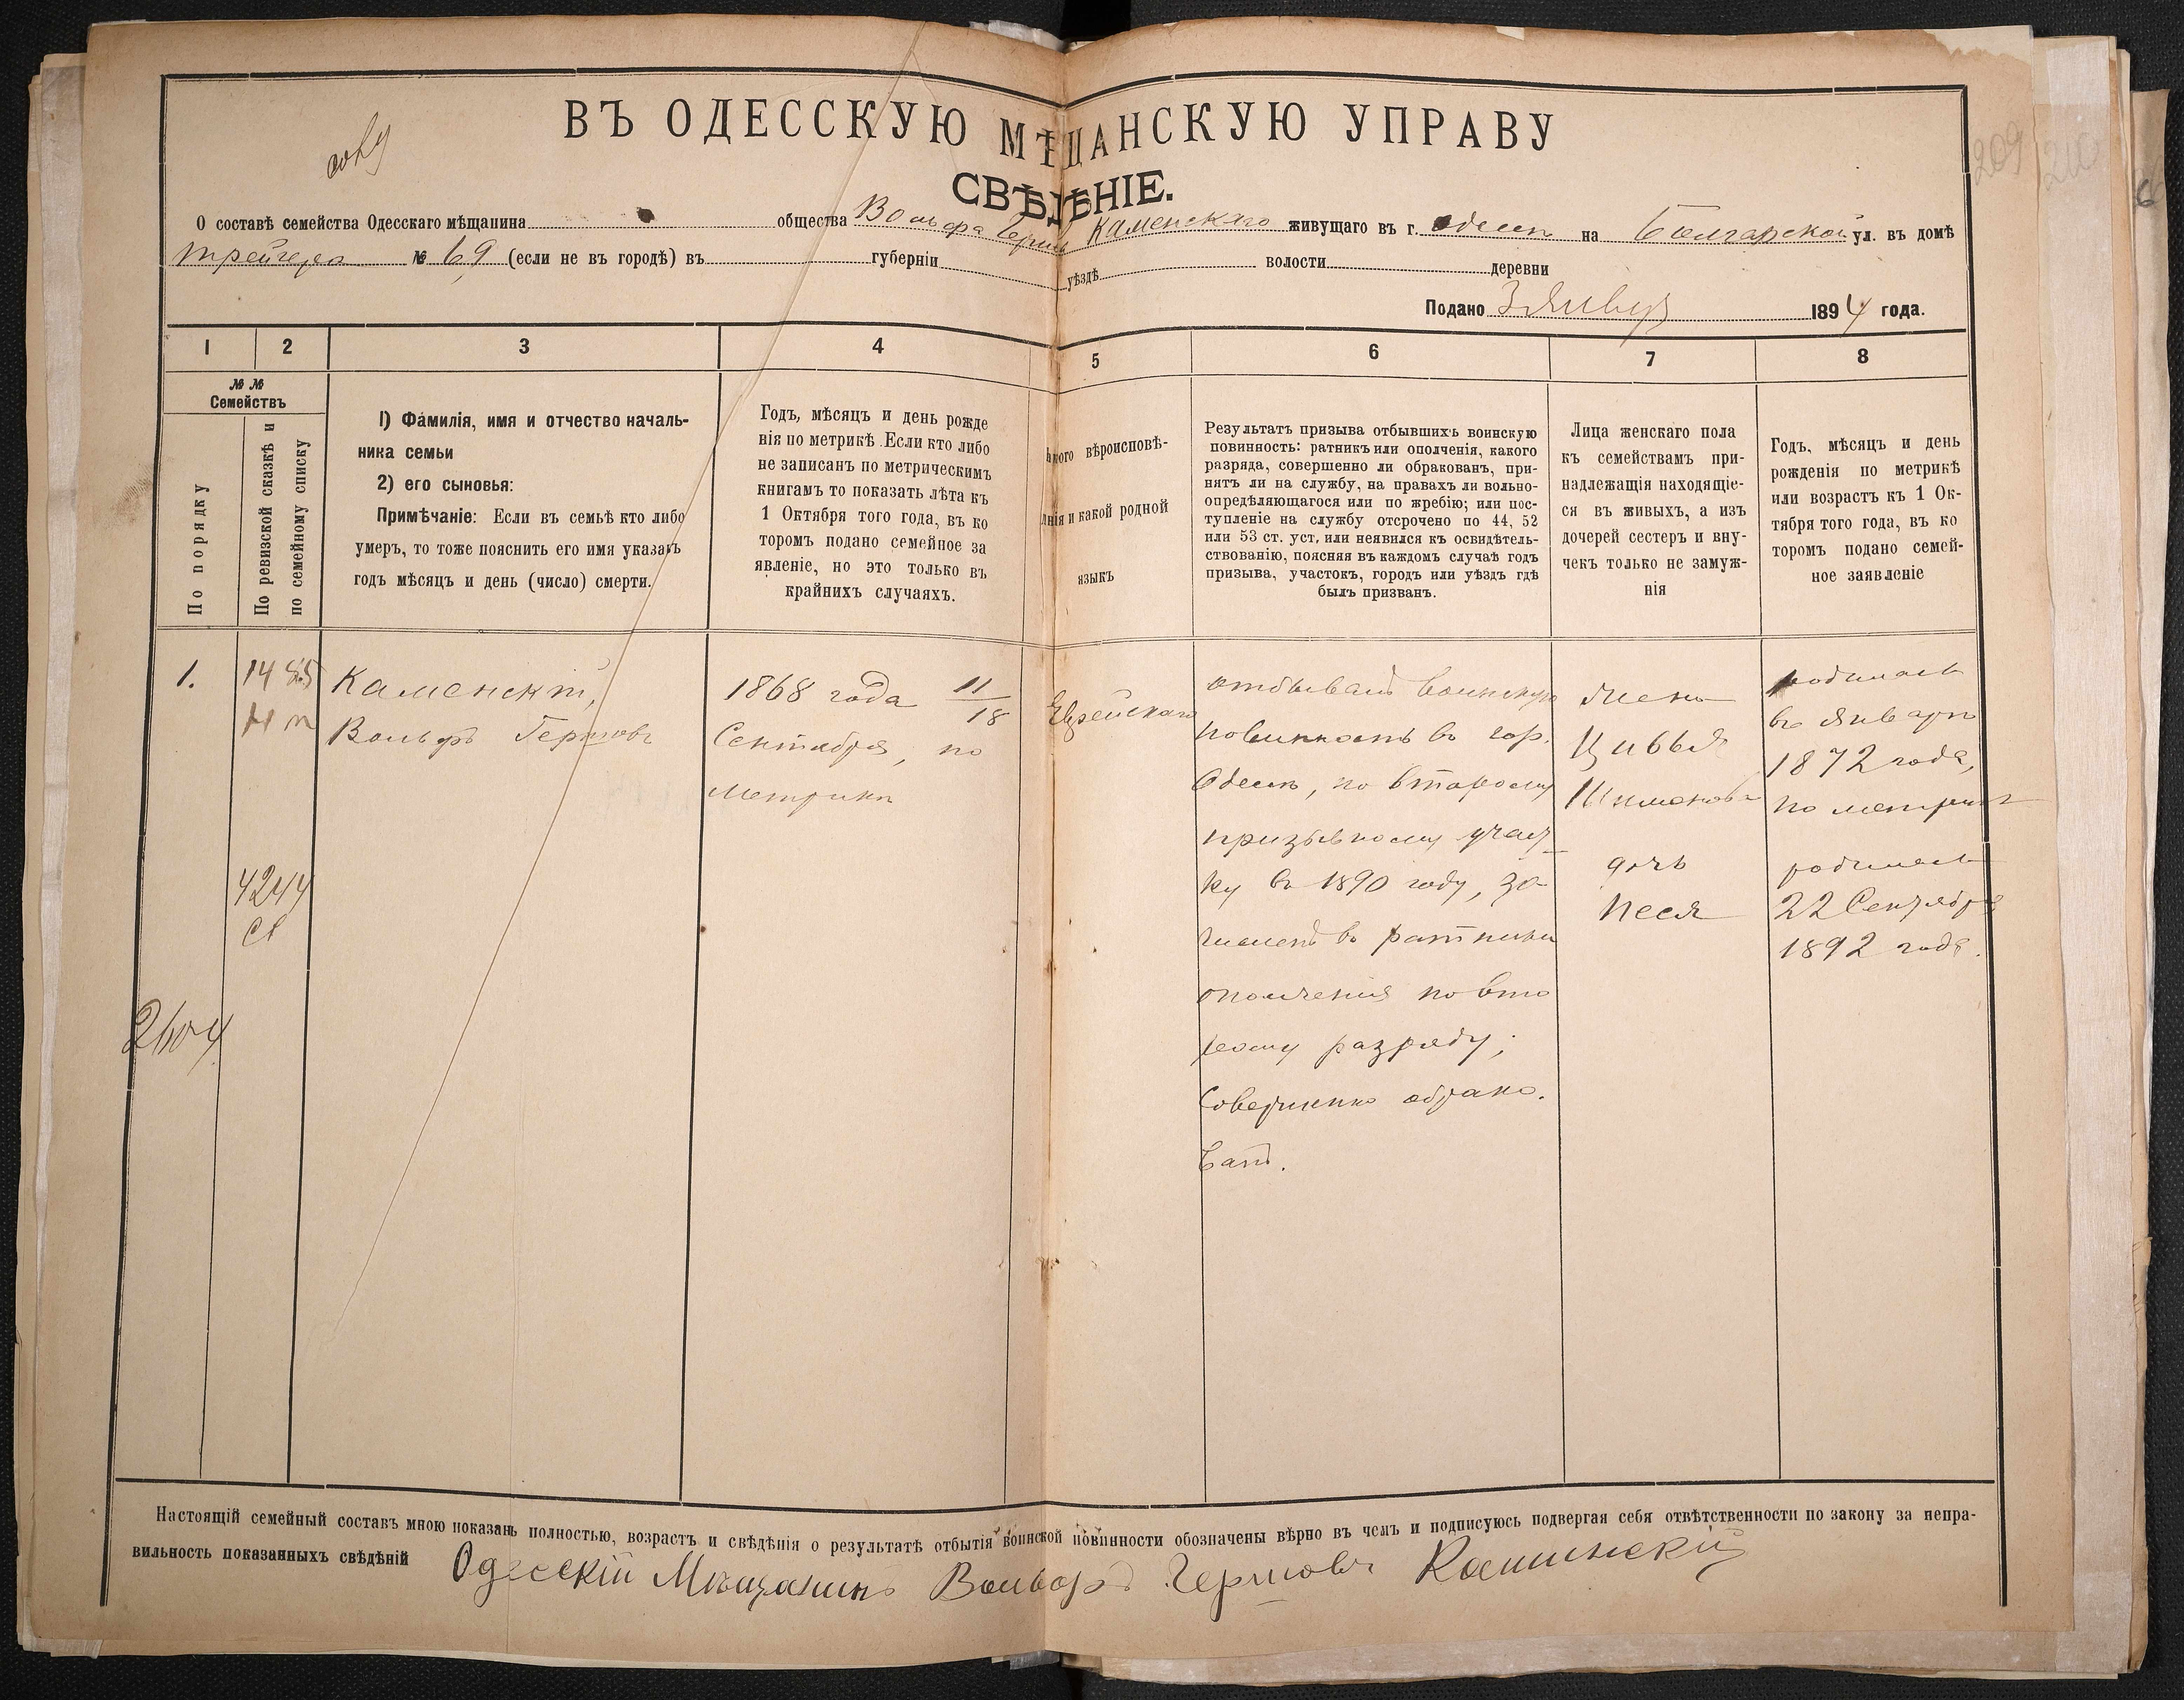 ВЪ ОДЕССКУЮ МѢЩАНСКУЮ УПРАВУ
СВѢДѢНІЕ.
О составѣ семейства Одесскаго мѣщанина общества Вольфа Герш. Каменскаго живущаго въ г. Одессѣ на Болгарской ул. въ домѣ
Трейгера № 69 (если не въ городѣ) въ губерніи уѣздѣ волости деревни
Подано 3 Январ 1894 года.
1 2 3 4 5 6 7 8
№ №
Семействъ
По порядку
По ревизской сказкѣ и
по семейному списку
1) Фамилія, имя и отчество началь-
ника семьи
2) его сыновья:
Примѣчаніе: Если въ семьѣ кто либо
умеръ, то тоже пояснить его имя указать
годъ мѣсяцъ и день (число) смерти.
Годъ, мѣсяцъ и день рожде
нія по метрикѣ. Если кто либо
не записанъ по метрическимъ
книгамъ то показать лѣта къ
1 Октября того года, въ ко
торомъ подано семейное за
явленіе, но это только въ
крайнихъ случаяхъ.
акого вѣроисповѣ-
анія и какой родной
языкъ
Результатъ призыва отбывшихъ воинскую
повинность: ратникъ или ополченія, какого
разряда, совершенно ли обракованъ, при-
нятъ ли на службу, на правахъ ли вольно-
опредѣляющагося или по жребію; или пос-
тупленіе на службу отсрочено по 44, 52
или 53 ст. уст, или неявился къ освидѣтель-
ствованію, поясняя въ каждомъ случаѣ годъ
призыва, участокъ, городъ или уѣздъ гдѣ
былъ призванъ.
Лица женскаго пола
къ семействамъ при-
надлежащія находящіе-
ся въ живыхъ, а изъ
дочерей сестеръ и вну-
чекъ только не замуж-
нія
Годъ, мѣсяцъ и день
рожденія по метрикѣ
или возрастъ къ 1 Ок-
тября того года, въ ко
торомъ подано семей-
ное заявленіе
1.
1485
4244
2604
Каменскій,
Вольфъ Гершовъ
1868 года 11/18
Сентября, по
метрикѣ
Еврейскаго
отбывалъ воинскую
повинность въ гор.
Одессѣ, по второму
призывному участ-
ку въ 1890 году, за-
численъ въ ратники
ополченія по вто
рому разряду;
Совершенно обрако.
ванъ.
Жена
Цивья
Шимонова
дочь
Песя
родилась
въ Январѣ
1872 года,
по метрикѣ
родилась
22 Сентября
1892 года.
Настоящій семейный составъ мною показанъ полностью, возрастъ и свѣдѣнія о результатѣ отбытія воинской повинности обозначены вѣрно въ чемъ и подписуюсь подвергая себя отвѣтственности по закону за непра-
вильность показанныхъ свѣдѣній Одесскій Мѣщанинъ Вольфъ Гершовъ Каминскій